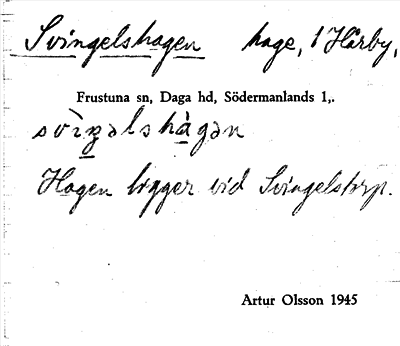 Svingelshagen hage, 1 Hårby,
Frustuna sn, Daga hd, Södermanlands l,.
svìŋəlshàgən
Hagen ligger vid Svingelstorp.
Artur Olsson 1945